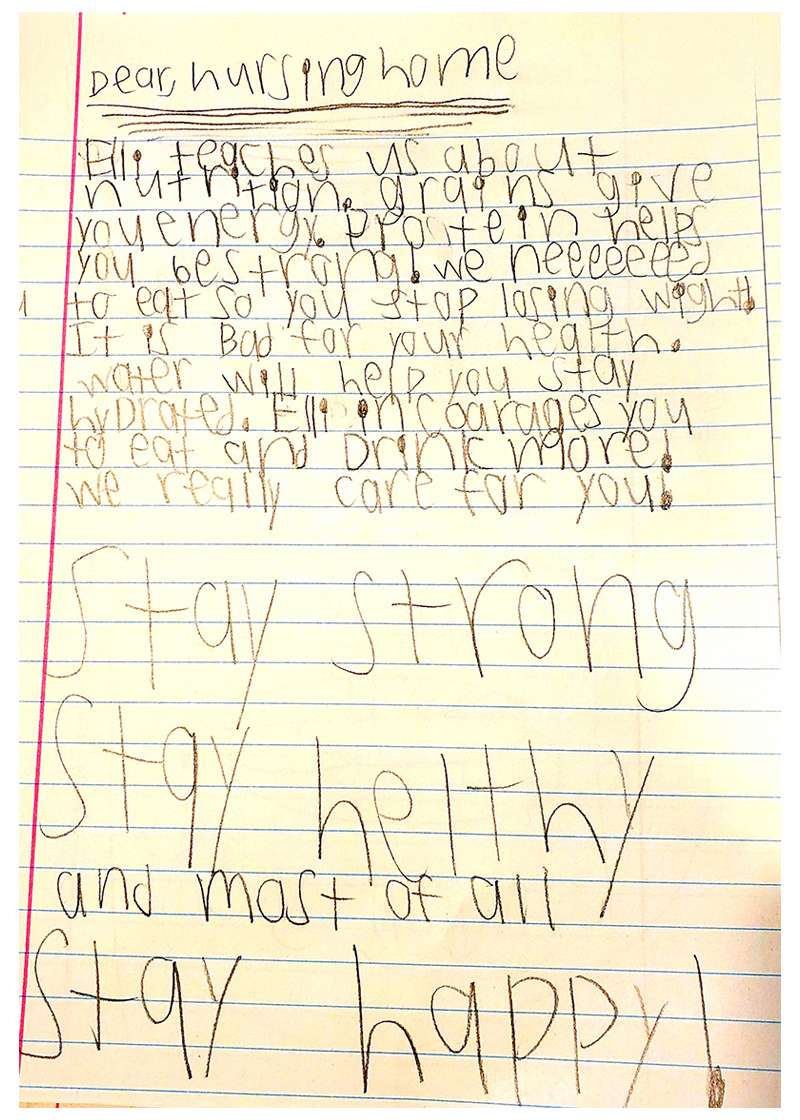 Dear, nursing home
Elli teaches us about
nutrition. grains give
you energy. Prontein helps
you be strong! we neeeeeed
to eat so you stop losing wight!
It is Bad for your health.
water will help you stay
hyDrated. Elli incoarages you
to eat and Drink more!
we really care for you!
Stay strong
Stay helthy
and most of all
Stay happy!